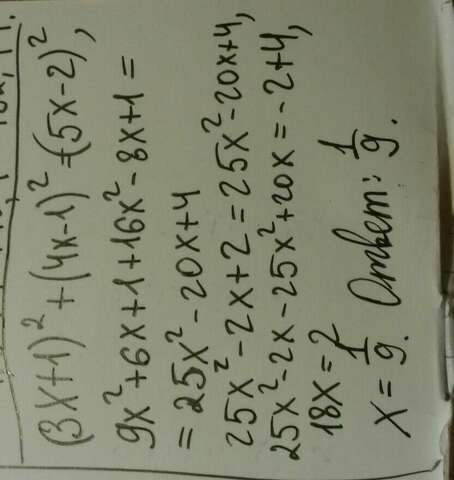 (3x+1)² + (4x-1)² = (5x-2)²,
9x² + 6x + 1 + 16x² - 8x + 1 =
= 25x² - 20x + 4
25x² - 2x + 2 = 25x² - 20x + 4,
25x² - 2x - 25x² + 20x = -2 + 4,
18x = 2
x = 1/9. Ответ: 1/9.